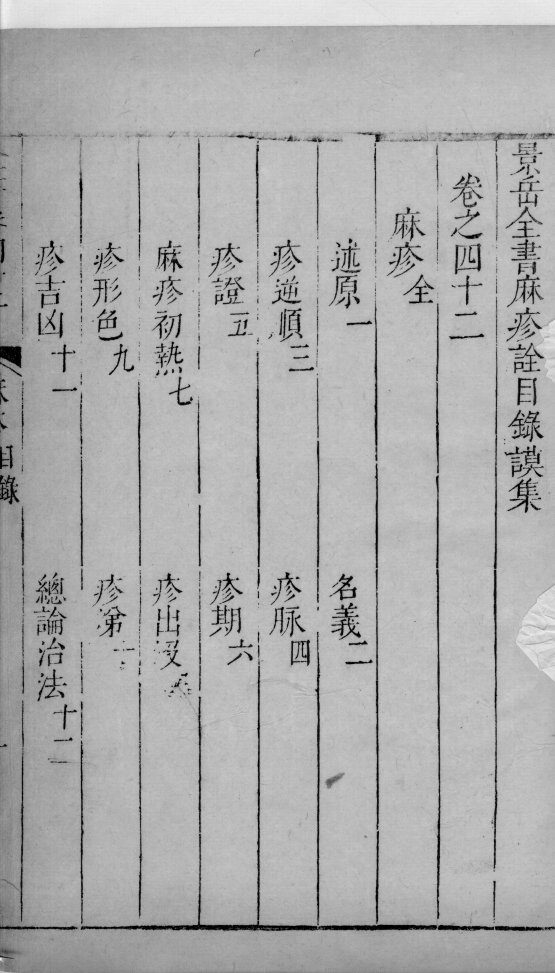 景岳全書麻疹詮目錄謨集
卷之四十二
麻疹全
述原一
名義二
疹逆順三
疹脉四
疹證五
疹期六
麻疹初熱七
疹出没
疹形色九
疹
疹吉凶十一
總論治法十二
目錄